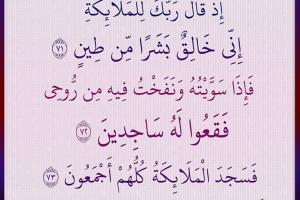 إِذْ قَالَ رَبُّكَ لِلْمَلَائِكَةِ
إِنِّي خَالِقٌ بَشَرًا مِّن طِينٍ ٧١
فَإِذَا سَوَّيْتُهُ وَنَفَخْتُ فِيهِ مِن رُّوحِى
فَقَعُوا لَهُ سَاجِدِينَ ٧٢
فَسَجَدَ الْمَلَائِكَةُ كُلُّهُمْ أَجْمَعُونَ ٧٣